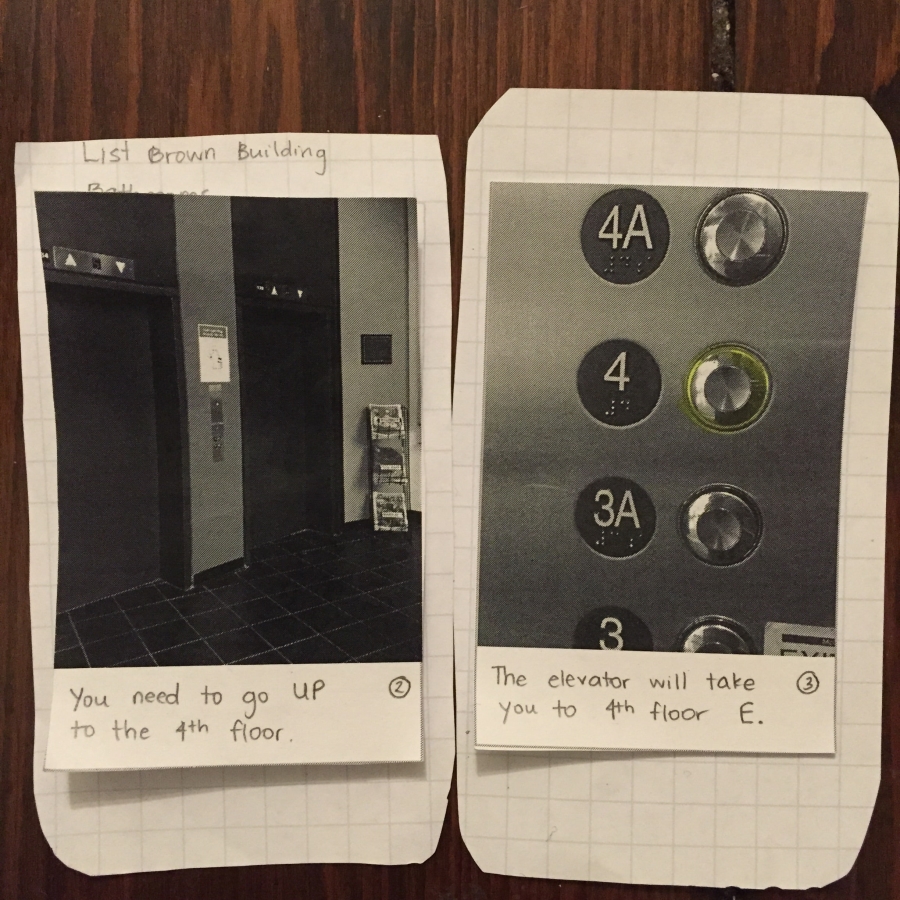 List Brown Building
You need to go UP
to the 4th floor.
②
4A
4
3A
3
The elevator will take
you to 4th floor E.
③